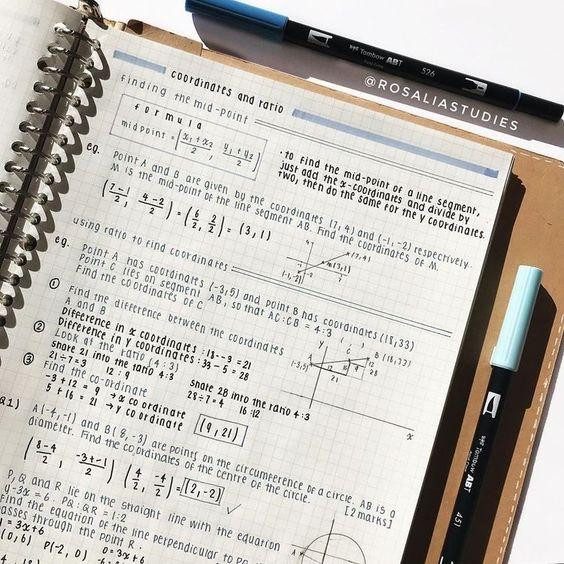 coordinates and ratio
finding the mid-point
formula
midpoint = (x₁+x₂/2, y₁+y₂/2)
· to find the mid-point of a line segment,
just add the x-coordinates and divide by
two, then do the same for the y coordinates.
eg. Point A and B are given by the coordinates (7,4) and (-1,-2) respectively.
M is the mid-point of the line segment AB. Find the coordinates of M.
(7-1/2, 4-2/2) = (6/2, 2/2) = (3,1)
(7,4)
M(3,1)
(-1,-2)
using ratio to find coordinates
eg. Point A has coordinates (-3,5) and point B has coordinates (18,33)
Point C lies on segment AB, so that AC:CB = 4:3
Find the coordinates of C
① Find the difference between the coordinates
A and B
Difference in x coordinates : 18--3 = 21
Difference in y coordinates : 33-5 = 28
② Look at the ratio (4:3)
share 21 into the ratio 4:3
21÷7=3 12:9
share 28 into the ratio 4:3
28÷7=4 16:12
③ Find the co-ordinate
-3+12 = 9 → x coordinate
5+16 = 21 → y coordinate
(9,21)
y
C
B (18,33)
(-3,5)
A
12
9
21
28
x
Q1) A(-4,-1) and B(8,-3) are points on the circumference of a circle, AB is a
diameter. Find the coordinates of the centre of the circle. [2 marks]
(8-4/2, -3+-1/2) (4/2, -4/2) = (2,-2) ✓
P, Q and R lie on the straight line with the equation
y-3x=6. PQ:QR = 1:2
Find the equation of the line perpendicular to
passes through the point R.
y = 3x+6
(0,6) P(-2,0) 0=3x+6
A
Tombow ABT
526
@ROSALIASTUDIES
Tombow ABT
451